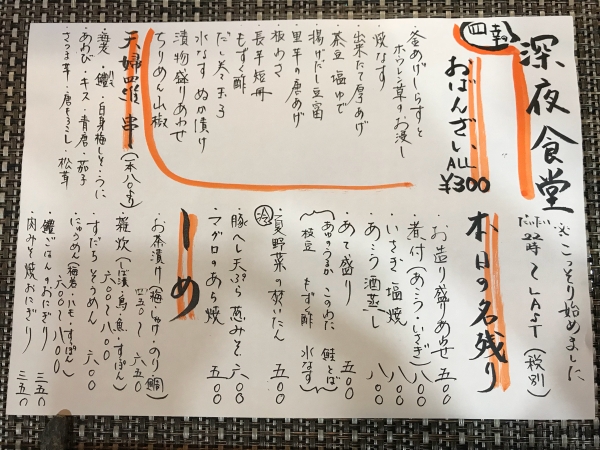 深夜食堂
※こっそり始めました
だいたい22時〜LAST(税別)
四季
おばんざい ALL ¥300
釜あげしらすと
ホウレン草のお浸し
焼なす
出来たて厚あげ
茶豆塩ゆで
揚げだし豆富
里芋の唐あげ
板わさ
長芋短冊
もずく酢
だし巻き玉子
水なすぬか漬け
漬物盛りあわせ
ちりめん山椒
天婦羅串(一本八〇ヨリ)
海老・鱧・白身梅しそ・うに
あわび・キス・青唐・茄子
さつま芋・唐もろこし・松茸
本日の名残り
お造り盛りあわせ 五〇〇
煮付(あこう・いさぎ) 八〇〇
いさぎ塩焼 八〇〇
あこう酒蒸し 八〇〇
あて盛り 五〇〇
あゆのうるか このわた 鮭とば
枝豆 もずく酢 水なす
冷 夏野菜の炊いたん 五〇〇
豚へし天ぷら 葱みそ 六〇〇
マグロのあら焼 五〇〇
しめ
お茶漬け(梅・しゃけ・のり・鯛)
五五〇〜六五〇
雑炊(しば漬・鳥・魚・すぽん)
六〇〇〜八〇〇
すだちそうめん 六〇〇
にゅうめん(梅若・はも・すぽん)
六〇〇〜八〇〇
鱧ごはんのおにぎり 三五〇
肉みそ焼おにぎり 三五〇